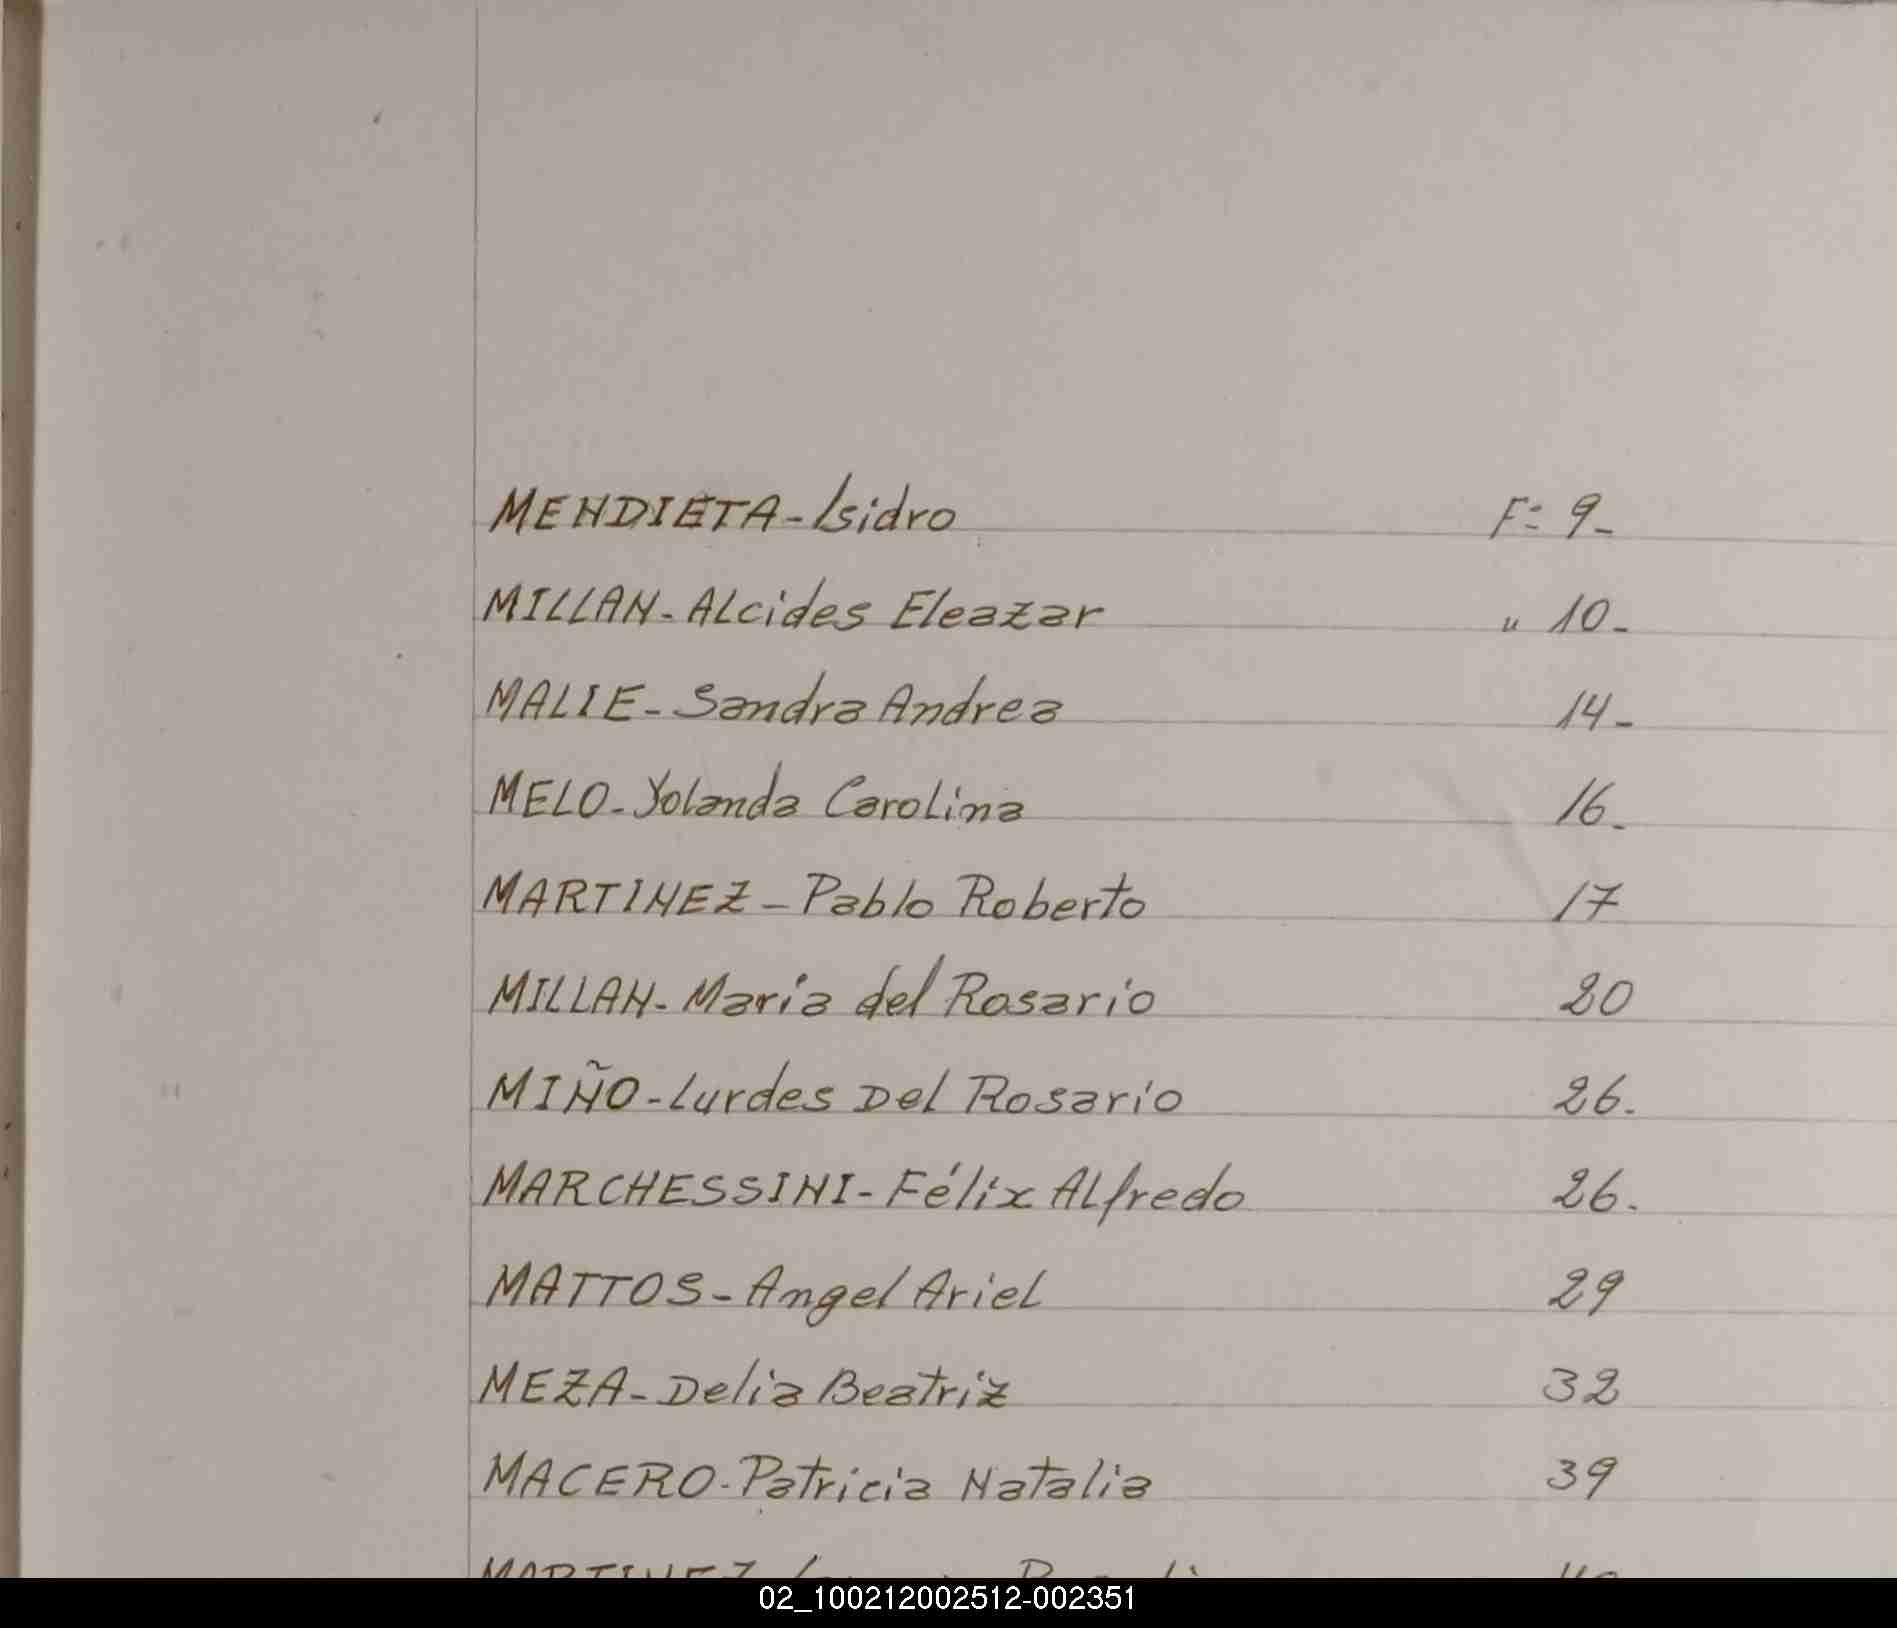 MENDIETA - Isidro F= 9_
MILLAN - Alcides Eleazar " 10_
MALIE - Sandra Andrea 14 -
MELO - Yolanda Carolina 16_
MARTINEZ - Pablo Roberto 17
MILLAN - María del Rosario 20
MIÑO - Lurdes Del Rosario 26.
MARCHESSINI - Félix Alfredo 26.
MATTOS - Angel Ariel 29
MEZA - Delia Beatriz 32
MACERO - Patricia Natalia 39
MARTINEZ
02_100212002512-002351